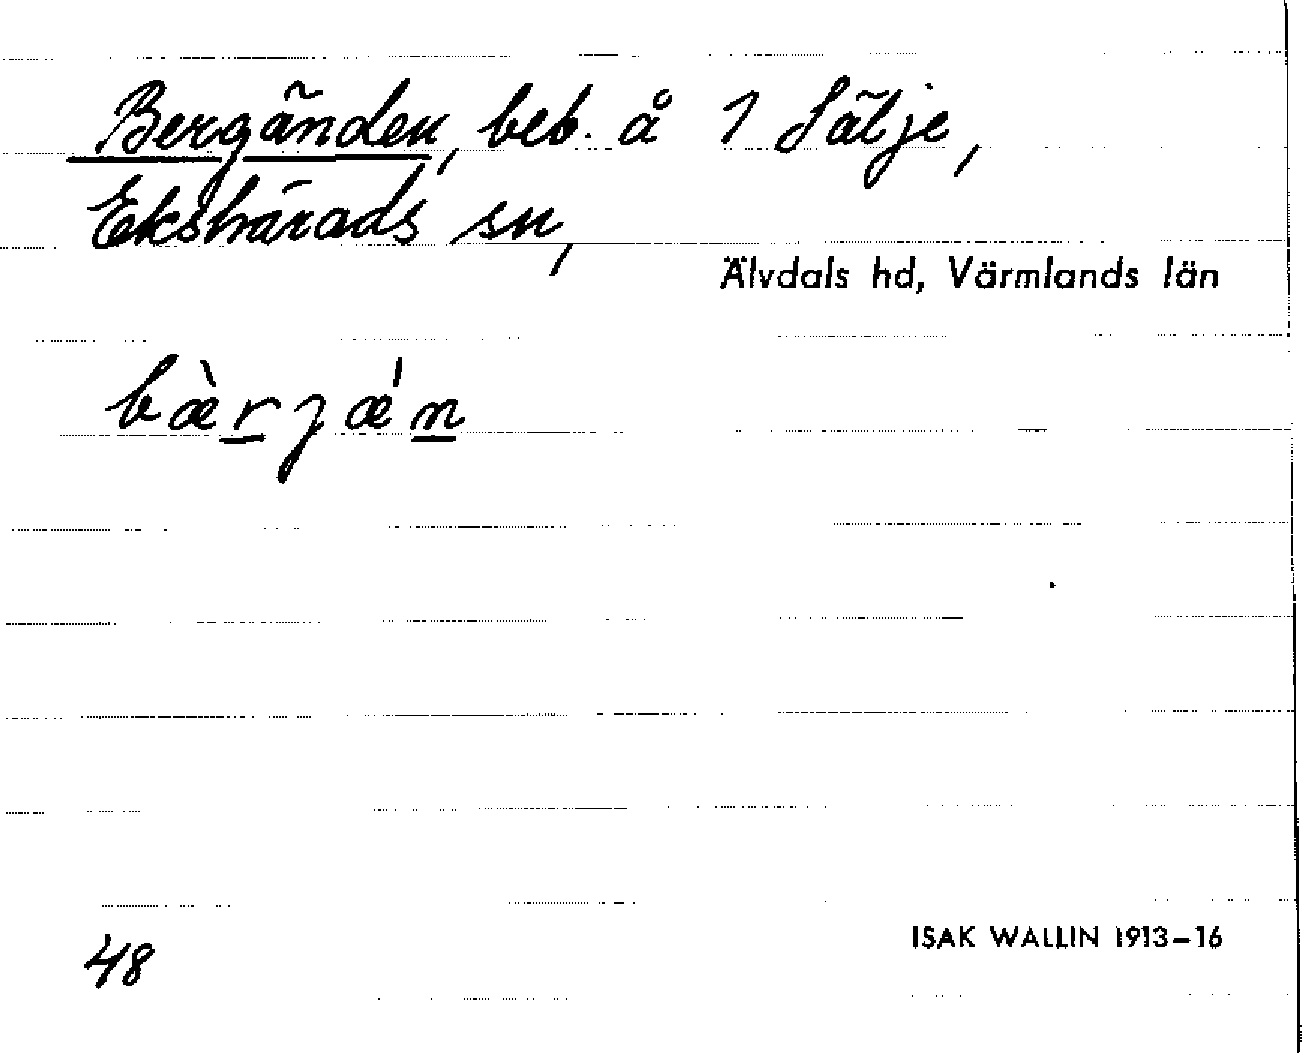 Bergänden, beb. å 1 Sälje,
Ekshärads sn,
Älvdals hd, Värmlands län
bæ̀rjǽn
48
ISAK WALLIN 1913–16